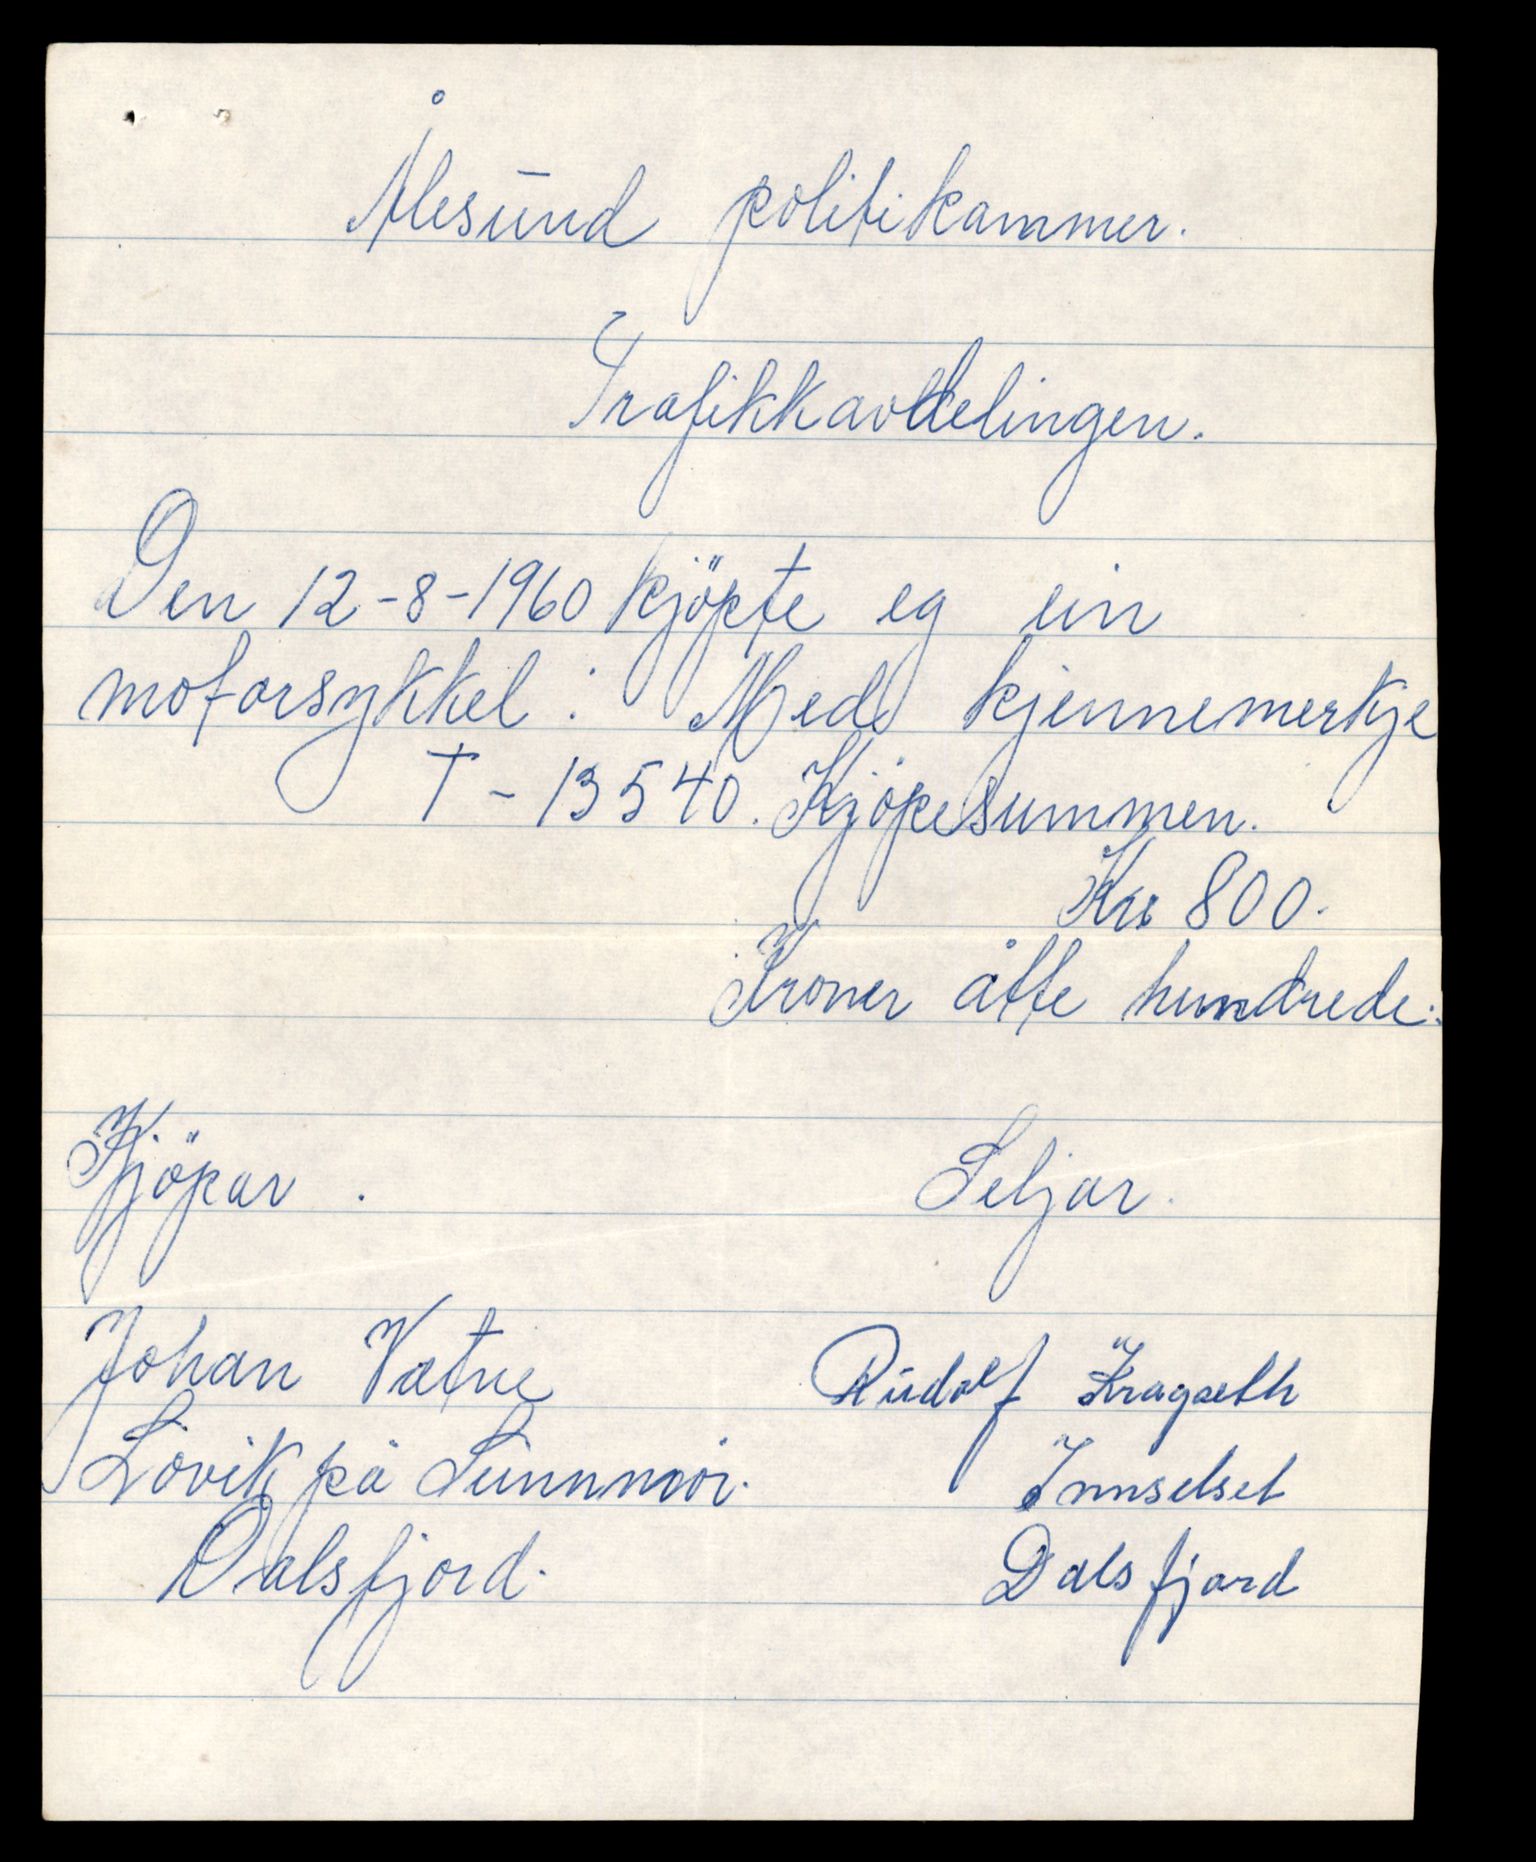 Ålesund politikammer.
Trafikkavdelingen.
Den 12-8-1960 kjöpte eg ein
motorsykkel: Med kjennemerkje
T - 13540. Kjöpesummen.
Kr. 800.
Kroner åtte hundrede.
Kjöpar. Seljar.
Johan Vatne Rudolf Kragseth
Lövik på Sunnmör. Innselset
Dalsfjord. Dalsfjord